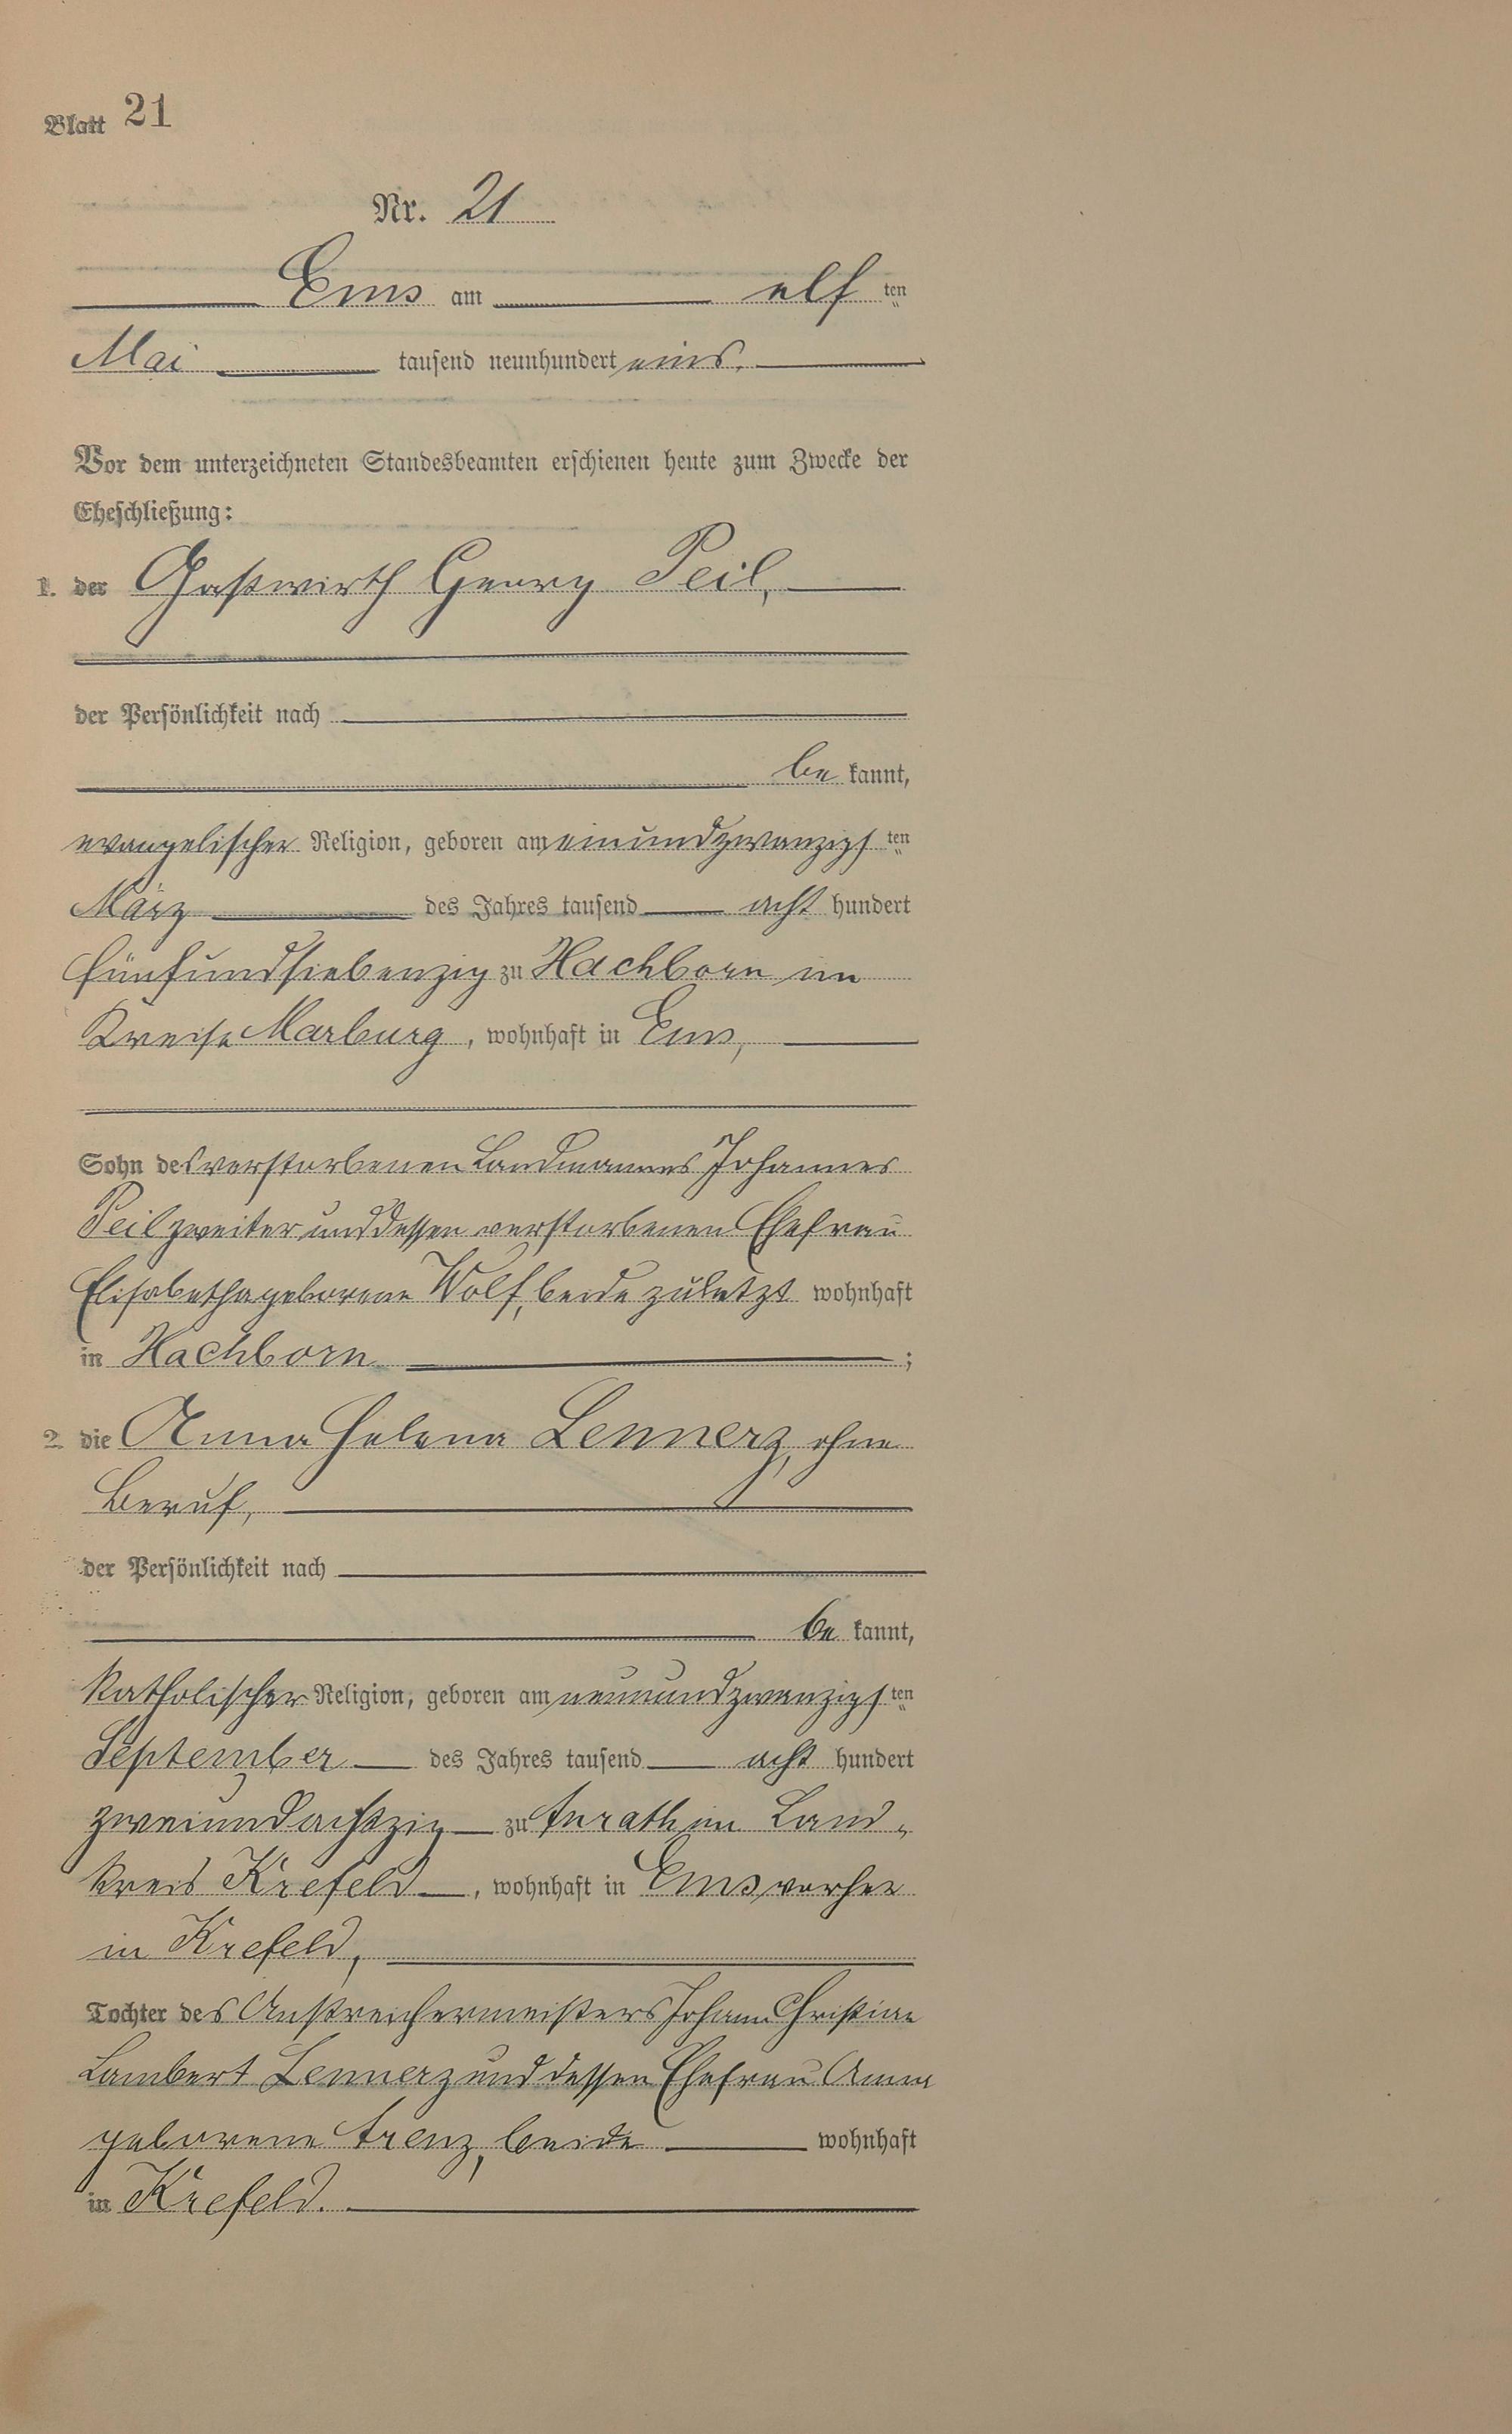 Blatt 21
Nr. 21
Ems am elf ten
Mai tausend neunhundert eins.
Vor dem unterzeichneten Standesbeamten erschienen heute zum Zwecke der
Eheschließung:
1. der Gastwirth Georg Peil,
der Persönlichkeit nach
be kannt,
evangelischer Religion, geboren am einundzwanzigs ten
März des Jahres tausend acht hundert
fünfundsiebenzig zu Hachborn im
Kreise Marburg, wohnhaft in Ems,
Sohn des verstorbenen Landmannes Johannes
Peil zweiter und dessen verstorbenen Ehefrau
Elisabetha geborene Wolf, beide zuletzt wohnhaft
in Hachborn ;
2. die Anna Helena Lennerz, ohne
Beruf,
der Persönlichkeit nach
be kannt,
katholischer Religion, geboren am neunundzwanzigs ten
September des Jahres tausend acht hundert
zweiundachtzig zu Anrath im Land-
kreis Krefeld, wohnhaft in Ems vorher
in Krefeld,
Tochter des Anstreichermeisters Johann Christian
Lambert Lennerz und dessen Ehefrau Anna
geborene Arenz, beide wohnhaft
in Krefeld.